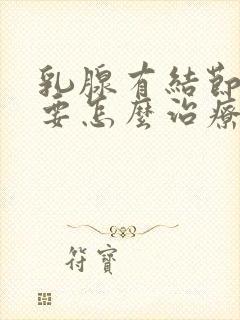 乳腺有結節
要怎麼治療
符寶